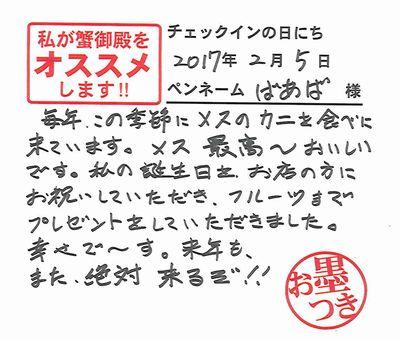 私が蟹御殿を
オススメ
します!!
チェックインの日にち
2017年 2月 5日
ペンネーム ばあば 様
毎年、この季節にメスのカニを食べに
来ています。メス 最高〜おいしい
です。私の誕生日を、お店の方に
お祝いしていただき、フルーツまで
プレゼントをしていただきました。
幸せで〜す。来年も、
また、絶対 来るぞ!!
お墨つき